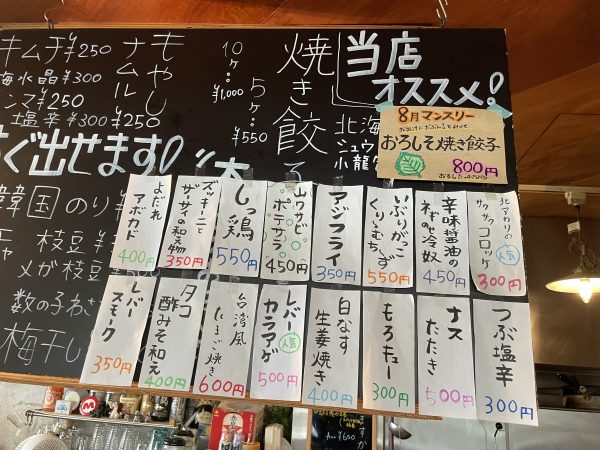 キムチ¥250
梅水晶¥300
¥250
塩辛¥300
もやし
ナムル
10ヶ…
¥1,000
5ヶ…
¥550
焼き餃子
当店
オススメ!
北海
小龍
8月マンスリー
おろしそ焼き餃子
800円
ぐ出せます!
韓国のり
枝豆
メガ枝豆
数の子わさ
梅干し
よだれ
アボカド
400円
ズッキーニと
ザーサイの和え物
350円
しっ鶏
550円
山ワサビ
ポテサラ
450円
アジフライ
350円
いぶりがっこ
くりーむちーず
550円
辛味醤油の
ネバネバ冷奴
450円
北アカリの
サクサク
コロッケ
人気
300円
レバー
スモーク
350円
タコ
酢みそ和え
400円
台湾風
たまご焼き
600円
レバー
カラアゲ
人気
500円
白なす
生姜焼き
400円
もろキュー
300円
ナス
たたき
500円
つぶ塩辛
300円